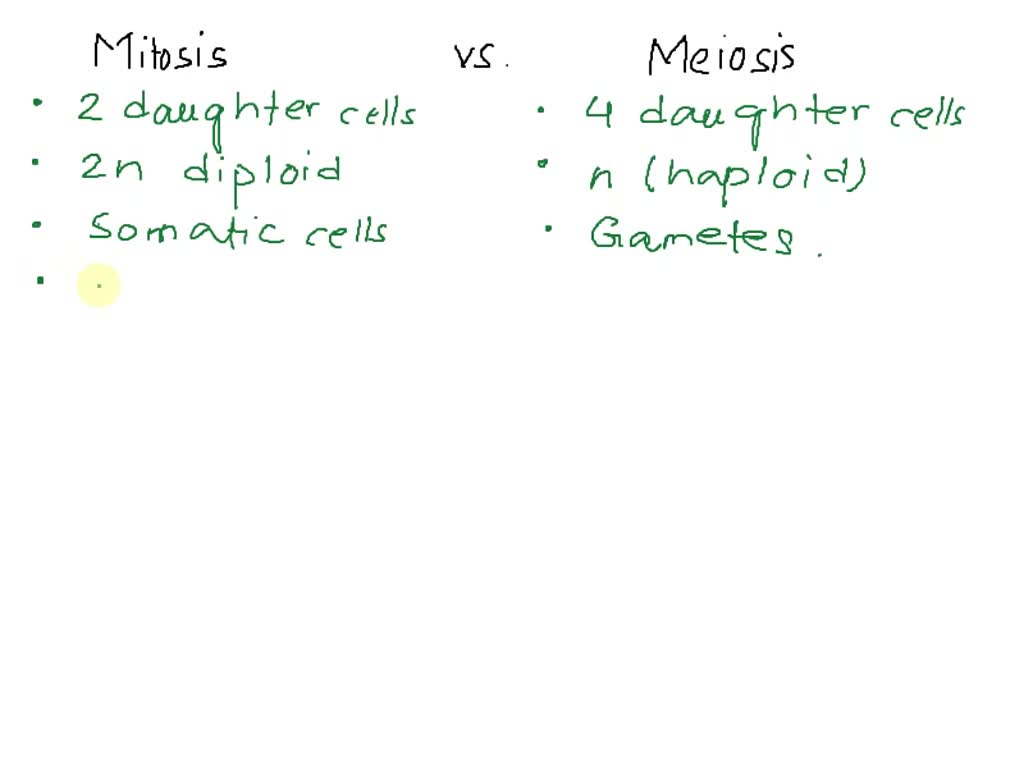 Mitosis vs. Meiosis
• 2 daughter cells • 4 daughter cells
• 2n diploid • n (haploid)
• Somatic cells • Gametes.
•